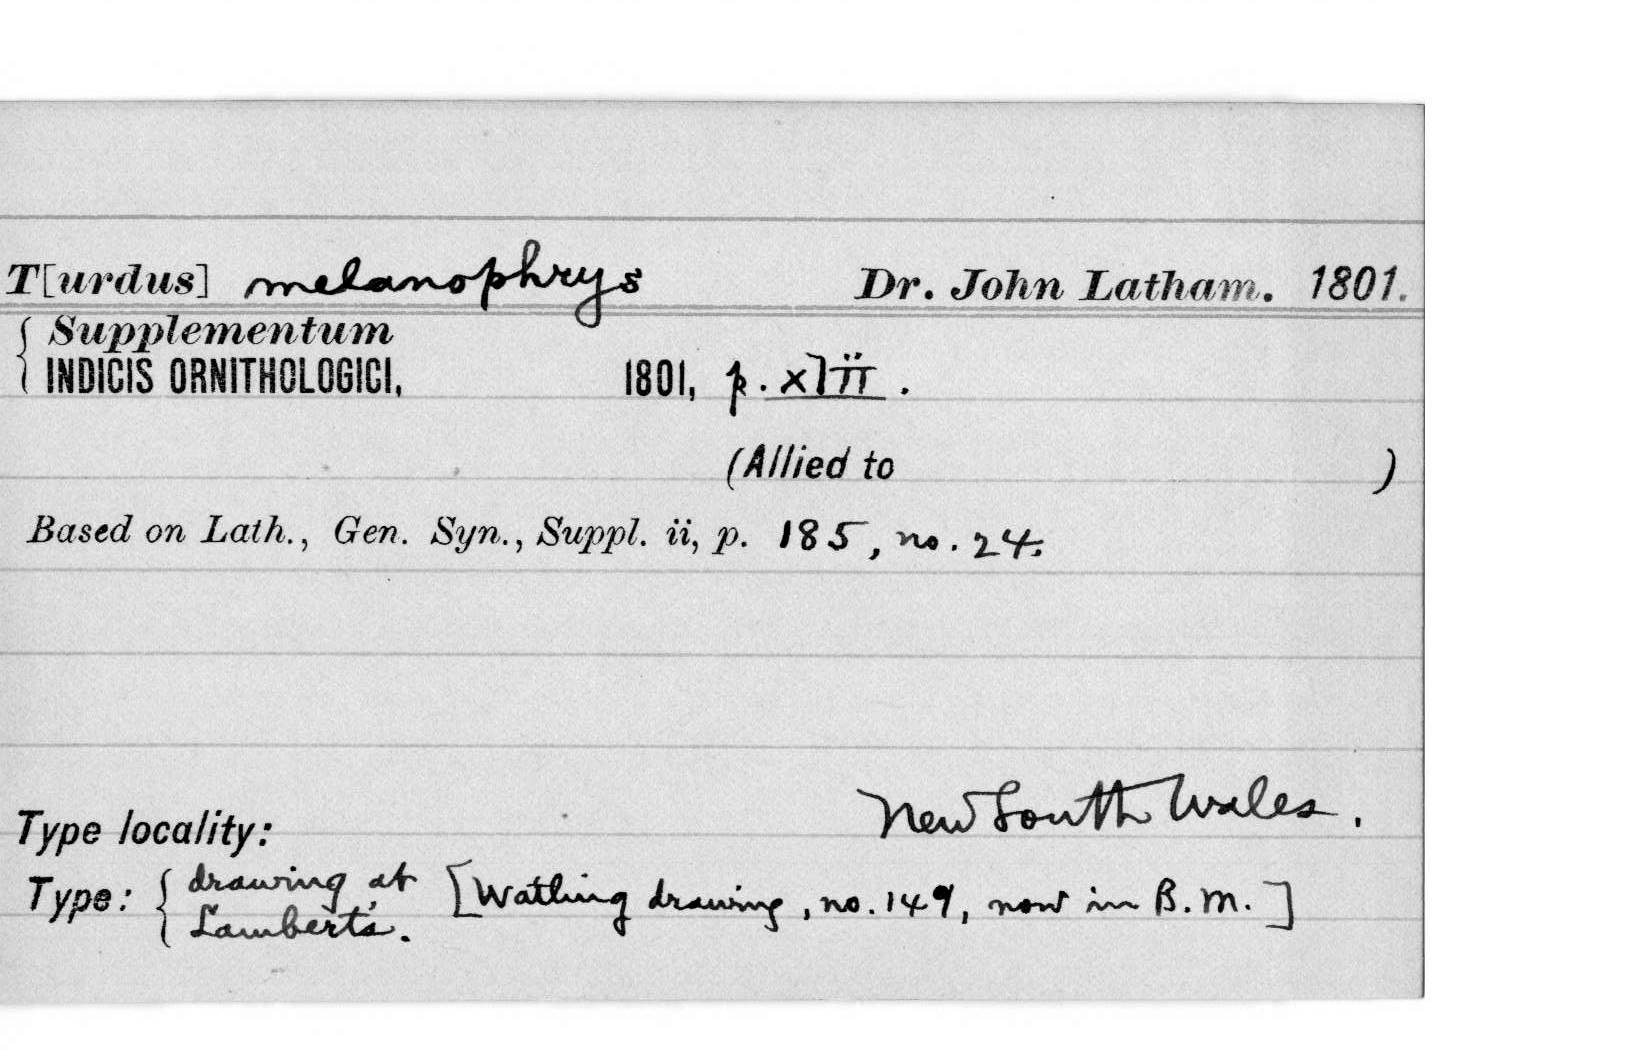 T[urdus] melanophrys Dr. John Latham. 1801.
Supplementum
INDICIS ORNITHOLOGICI, 1801, p. xlii.
(Allied to )
Based on Lath., Gen. Syn., Suppl. ii, p. 185, no. 24.
New South Wales.
Type locality:
Type: { drawing at Lambert's. [Watling drawing, no. 149, now in B.M.]